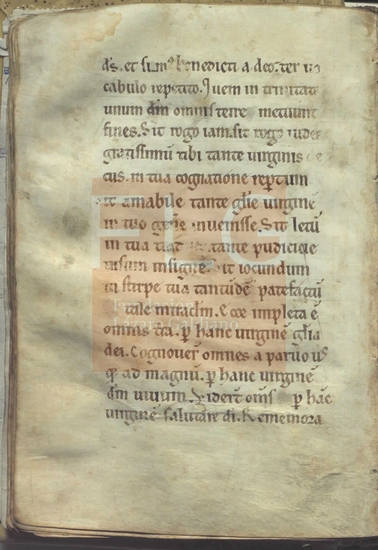 ds. et sim9 benedicti a deo. ter uo
cabulo repetito. Quem in trinitate
unum dm omnis terre metuunt
fines. Sit rogo iam. sit rogo iudei
gratissimū tibi tante virginis de
cus. in tua cognatione rep̄tum
sit amabile tante głie virginē
in tuo genere inuenisse. Sit letū
in tua tante pudicicie
uisum insigne. Sit iocundum
in stirpe tua tantūdē patefactū
tale miraclm. Ecce impleta ē
omnis tr̄a. p̄ hanc virginē glia
dei. Cognouer̄ omnes a paruo us
q3 ad magnū. p̄ hanc virginē
dm uiuum. Viderūt om̄s p̄ hac
virginē salutare di. Rememora